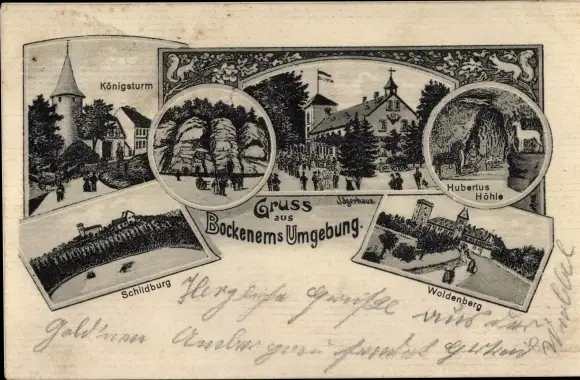 Königsturm
Jägerhaus.
Hubertus
Höhle
Gruss
aus
Bockenems Umgebung.
Schildburg
Woldenberg
Herzliche Grüße aus der
Gold'nen